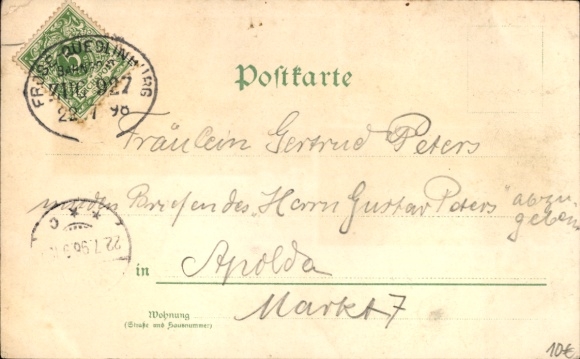 FROSE-QUEDLINBURG
BAHNPOST
ZUG 927
22 7 98
Postkarte
Fräulein Gertrud Peters
mit den Briefen des „Herrn Gustav Peters" abzu-
geben
22.7.98
in Apolda
Markt 7
Wohnung
(Straße und Hausnummer)
10€